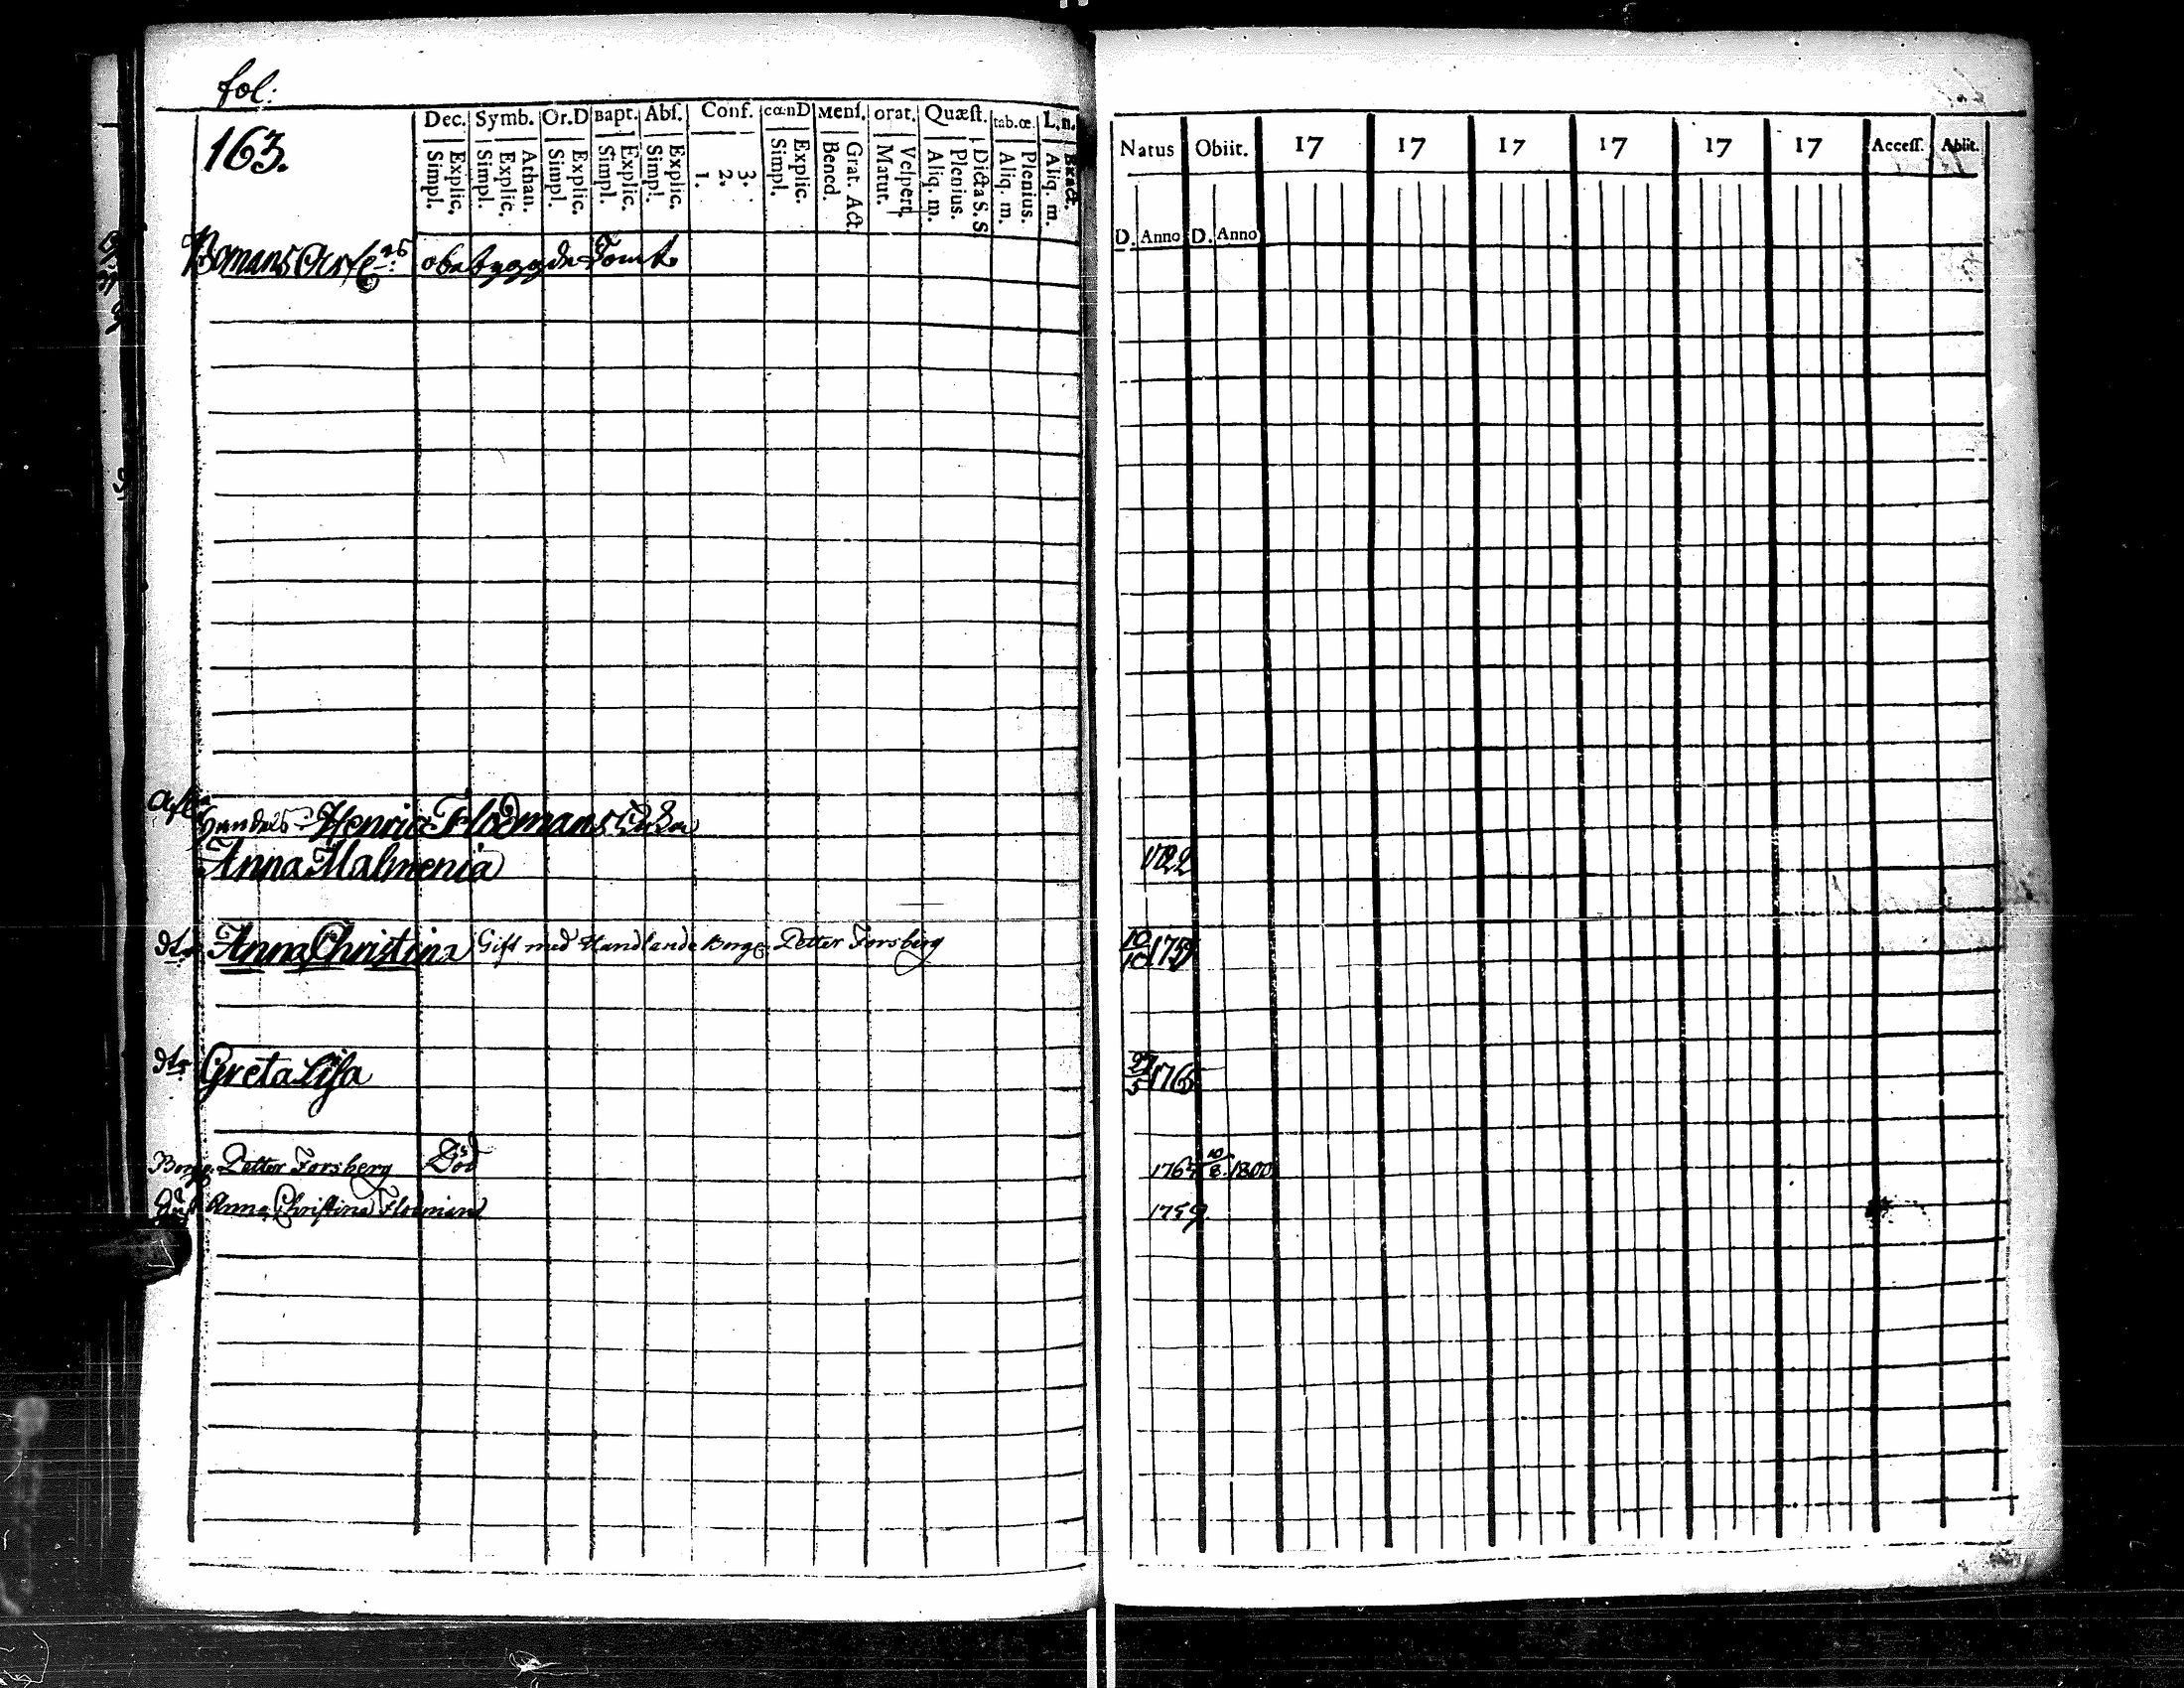 fol:
163.
Dec. Symb. Or.D Bapt. Abſ. Conf. cœnD Menſ. orat. Quæſt. tab.œ. L.n.
Simpl. Explic. Simpl. Explic. Athan. Simpl. Explic. Simpl. Explic. Simpl. Explic. 1. 2. 3. Simpl. Explic. Bened. Grat. Act. Matut. Veſpert. Aliq. m. Plenius. Dicta S. S. Aliq. m. Plenius. Aliq. m. Exact.
Natus Obiit. 17 17 17 17 17 17 Acceſſ. Abiit.
D. Anno D. Anno
Bomans obebyggda Tomt
Handels Henric Flodmans Enka
Anna Malmenia 1722
dtr Anna Christina Gift med Handlande Borg. Petter Forsberg 10/10 1759
dtr Greta Lisa 27/5 1765
Borg. Petter Forsberg Död 1763 10/8 1800
Anna Christina Flodman 1759.